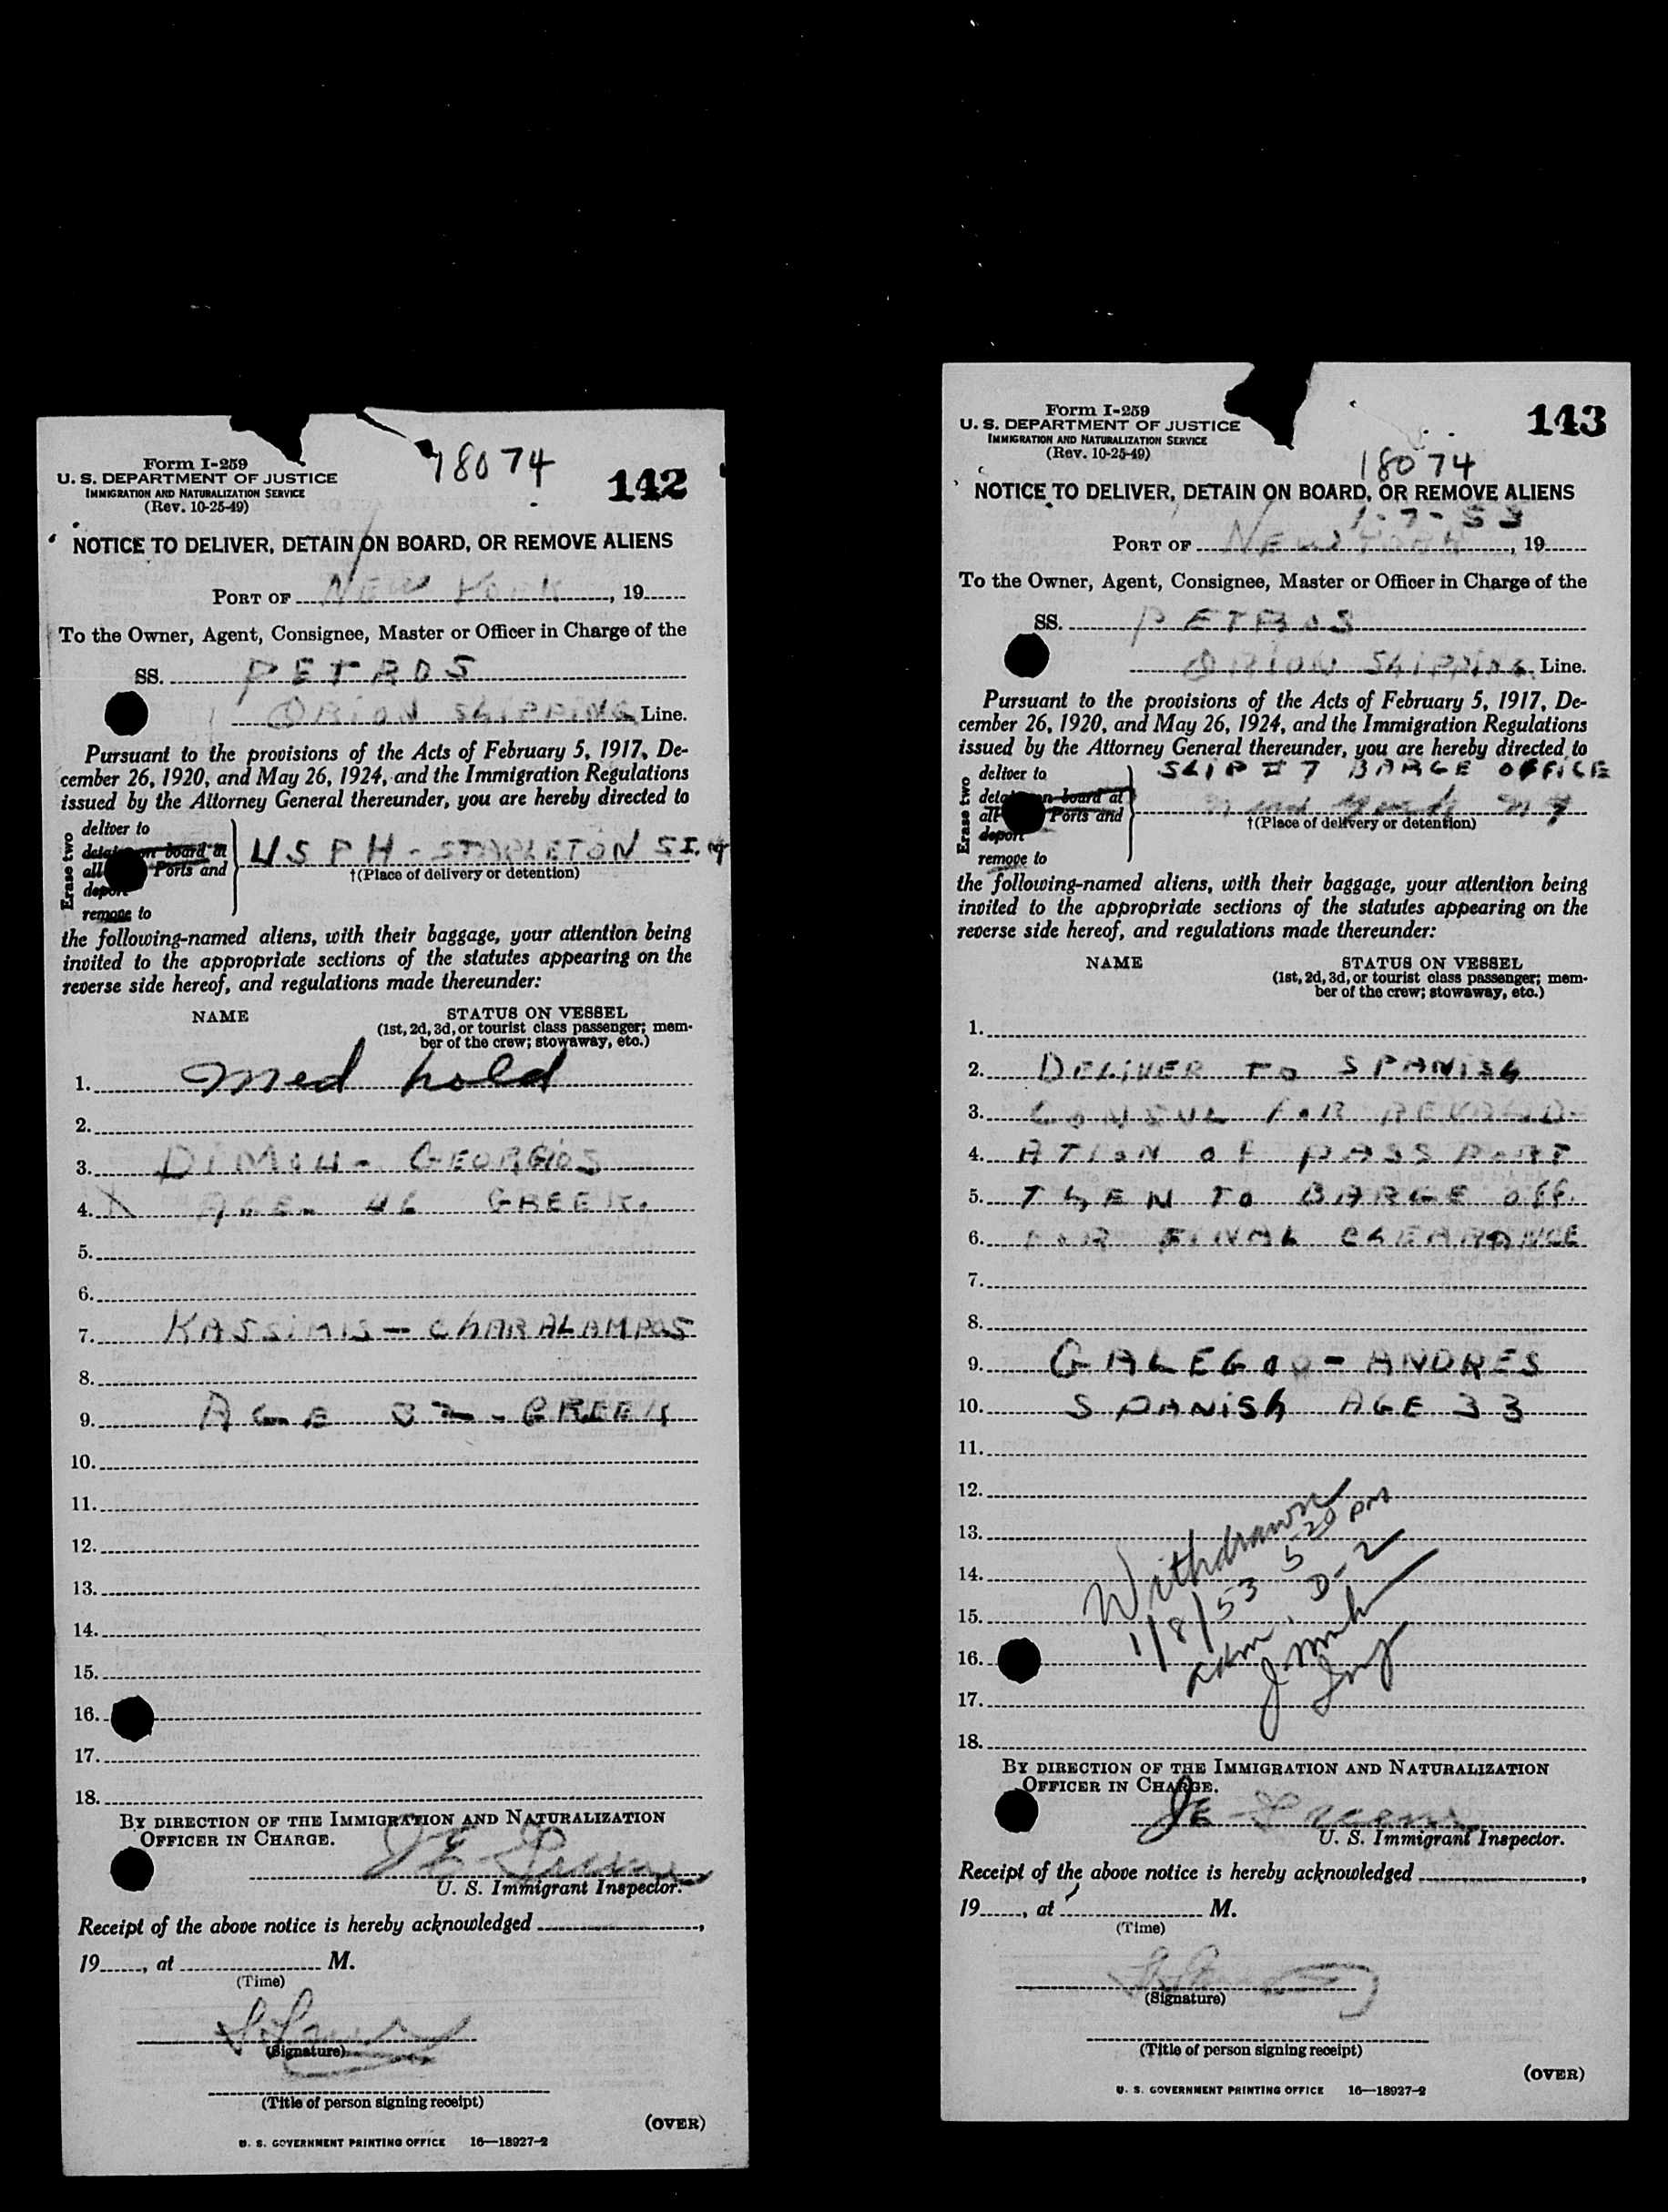 Form I-259
U. S. DEPARTMENT OF JUSTICE
IMMIGRATION AND NATURALIZATION SERVICE
(Rev. 10-25-49)
18074
142
NOTICE TO DELIVER, DETAIN ON BOARD, OR REMOVE ALIENS
PORT OF NEW YORK, 19
To the Owner, Agent, Consignee, Master or Officer in Charge of the
SS. PETROS
ORION SHIPPING Line.
Pursuant to the provisions of the Acts of February 5, 1917, De-
cember 26, 1920, and May 26, 1924, and the Immigration Regulations
issued by the Attorney General thereunder, you are hereby directed to
Erase two
deliver to
on board at
all Ports and
deport
remove to
USPH - STAPLETON S.I.
†(Place of delivery or detention)
the following-named aliens, with their baggage, your attention being
invited to the appropriate sections of the statutes appearing on the
reverse side hereof, and regulations made thereunder:
NAME
STATUS ON VESSEL
(1st, 2d, 3d, or tourist class passenger; mem-
ber of the crew; stowaway, etc.)
1. Med hold
2.
3. DIMOU - GEORGIOS
4. AGE - 46 GREEK.
5.
6.
7. KASSIMIS - CHARALAMPOS
8.
9. AGE 32 - GREEK
10.
11.
12.
13.
14.
15.
16.
17.
18.
BY DIRECTION OF THE IMMIGRATION AND NATURALIZATION
OFFICER IN CHARGE.
U. S. Immigrant Inspector.
Receipt of the above notice is hereby acknowledged ,
19 , at M.
(Time)
(Signature)
(Title of person signing receipt)
(OVER)
U. S. GOVERNMENT PRINTING OFFICE 16—18927-2
Form I-259
U. S. DEPARTMENT OF JUSTICE
IMMIGRATION AND NATURALIZATION SERVICE
(Rev. 10-25-49)
143
18074
NOTICE TO DELIVER, DETAIN ON BOARD, OR REMOVE ALIENS
1-7-53
PORT OF NEW YORK, 19
To the Owner, Agent, Consignee, Master or Officer in Charge of the
SS. PETROS
ORION SHIPPING Line.
Pursuant to the provisions of the Acts of February 5, 1917, De-
cember 26, 1920, and May 26, 1924, and the Immigration Regulations
issued by the Attorney General thereunder, you are hereby directed to
Erase two
deliver to
on board at
all Ports and
deport
remove to
SLIP # 7 BARGE OFFICE
New York N Y
†(Place of delivery or detention)
the following-named aliens, with their baggage, your attention being
invited to the appropriate sections of the statutes appearing on the
reverse side hereof, and regulations made thereunder:
NAME
STATUS ON VESSEL
(1st, 2d, 3d, or tourist class passenger; mem-
ber of the crew; stowaway, etc.)
1.
2. DELIVER TO SPANISH
3. CONSUL FOR REVALID-
4. ATION OF PASSPORT
5. THEN TO BARGE OFF.
6. FOR FINAL CLEARANCE
7.
8.
9. GALEGO - ANDRES
10. SPANISH AGE 33
11.
12.
13.
14.
15.
16.
17.
18.
Withdrawn
1/8/53 5 20 PM
D-2
BY DIRECTION OF THE IMMIGRATION AND NATURALIZATION
OFFICER IN CHARGE.
U. S. Immigrant Inspector.
Receipt of the above notice is hereby acknowledged ,
19 , at M.
(Time)
(Signature)
(Title of person signing receipt)
(OVER)
U. S. GOVERNMENT PRINTING OFFICE 16—18927-2